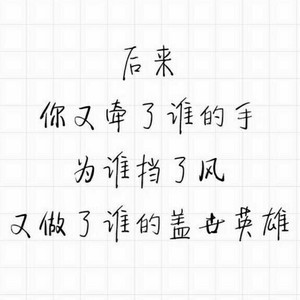 后来
你又牵了谁的手
为谁挡了风
又做了谁的盖世英雄